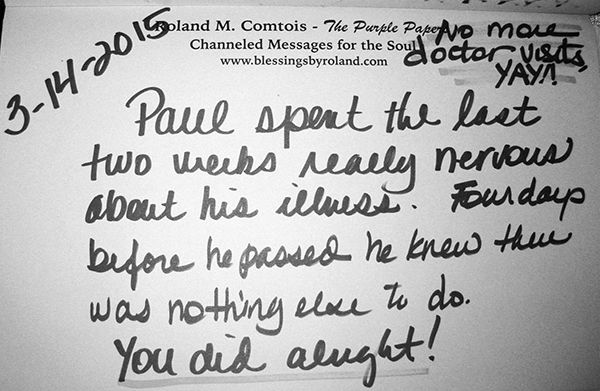 3-14-2015
Roland M. Comtois - The Purple Papers
Channeled Messages for the Soul
www.blessingsbyroland.com
No more
doctor visits,
YAY!!
Paul spent the last
two weeks really nervous
about his illness. Four days
before he passed he knew there
was nothing else to do.
You did alright!